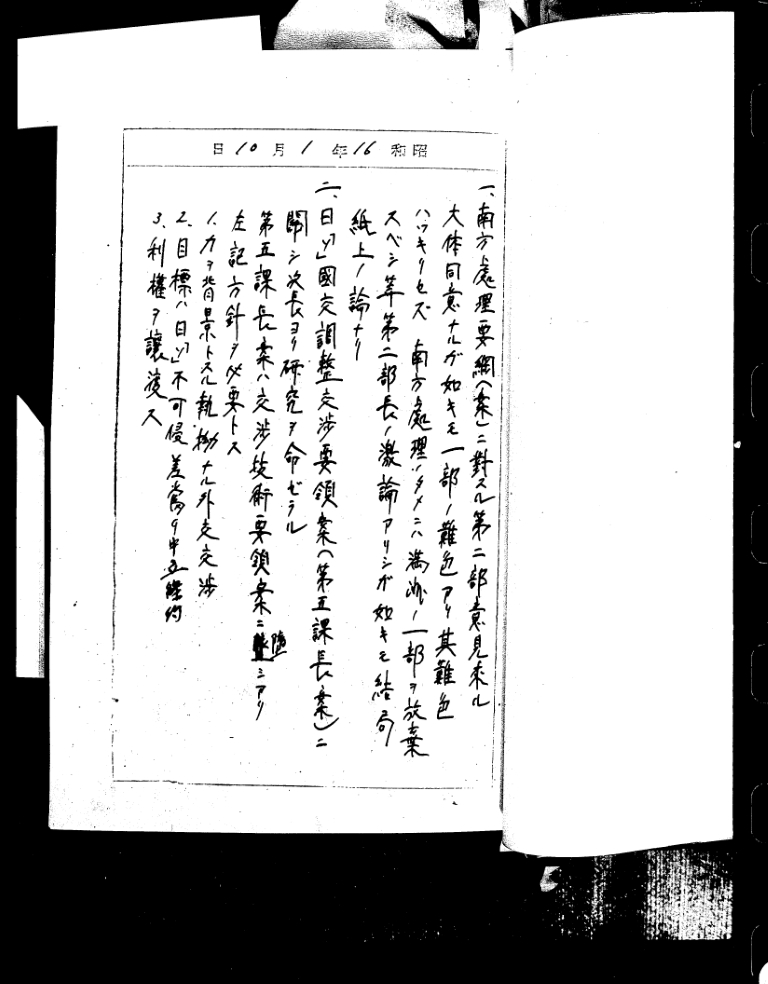 昭和16年1月10日
一、南方處理要綱(案)ニ對スル第二部意見来ル
大体同意ナルガ如キモ一部ノ難色アリ其難色
ハツキリセズ 南方處理ノタメニハ満洲ノ一部ヲ放棄
スベシ等第二部長ノ激論アリシガ如キモ結局
紙上ノ論ナリ
二、日「ソ」國交調整交渉要領案(第五課長案)ニ
関シ次長ヨリ研究ヲ命ゼラル
第五課長案ハ交渉技術要領案ニ堕シアリ
左記方針ヲ必要トス
1. カヲ背景トスル執拗ナル外交交渉
2. 目標ハ日「ソ」不可侵差當リ中立條約
3. 利權ヲ譲渡ス